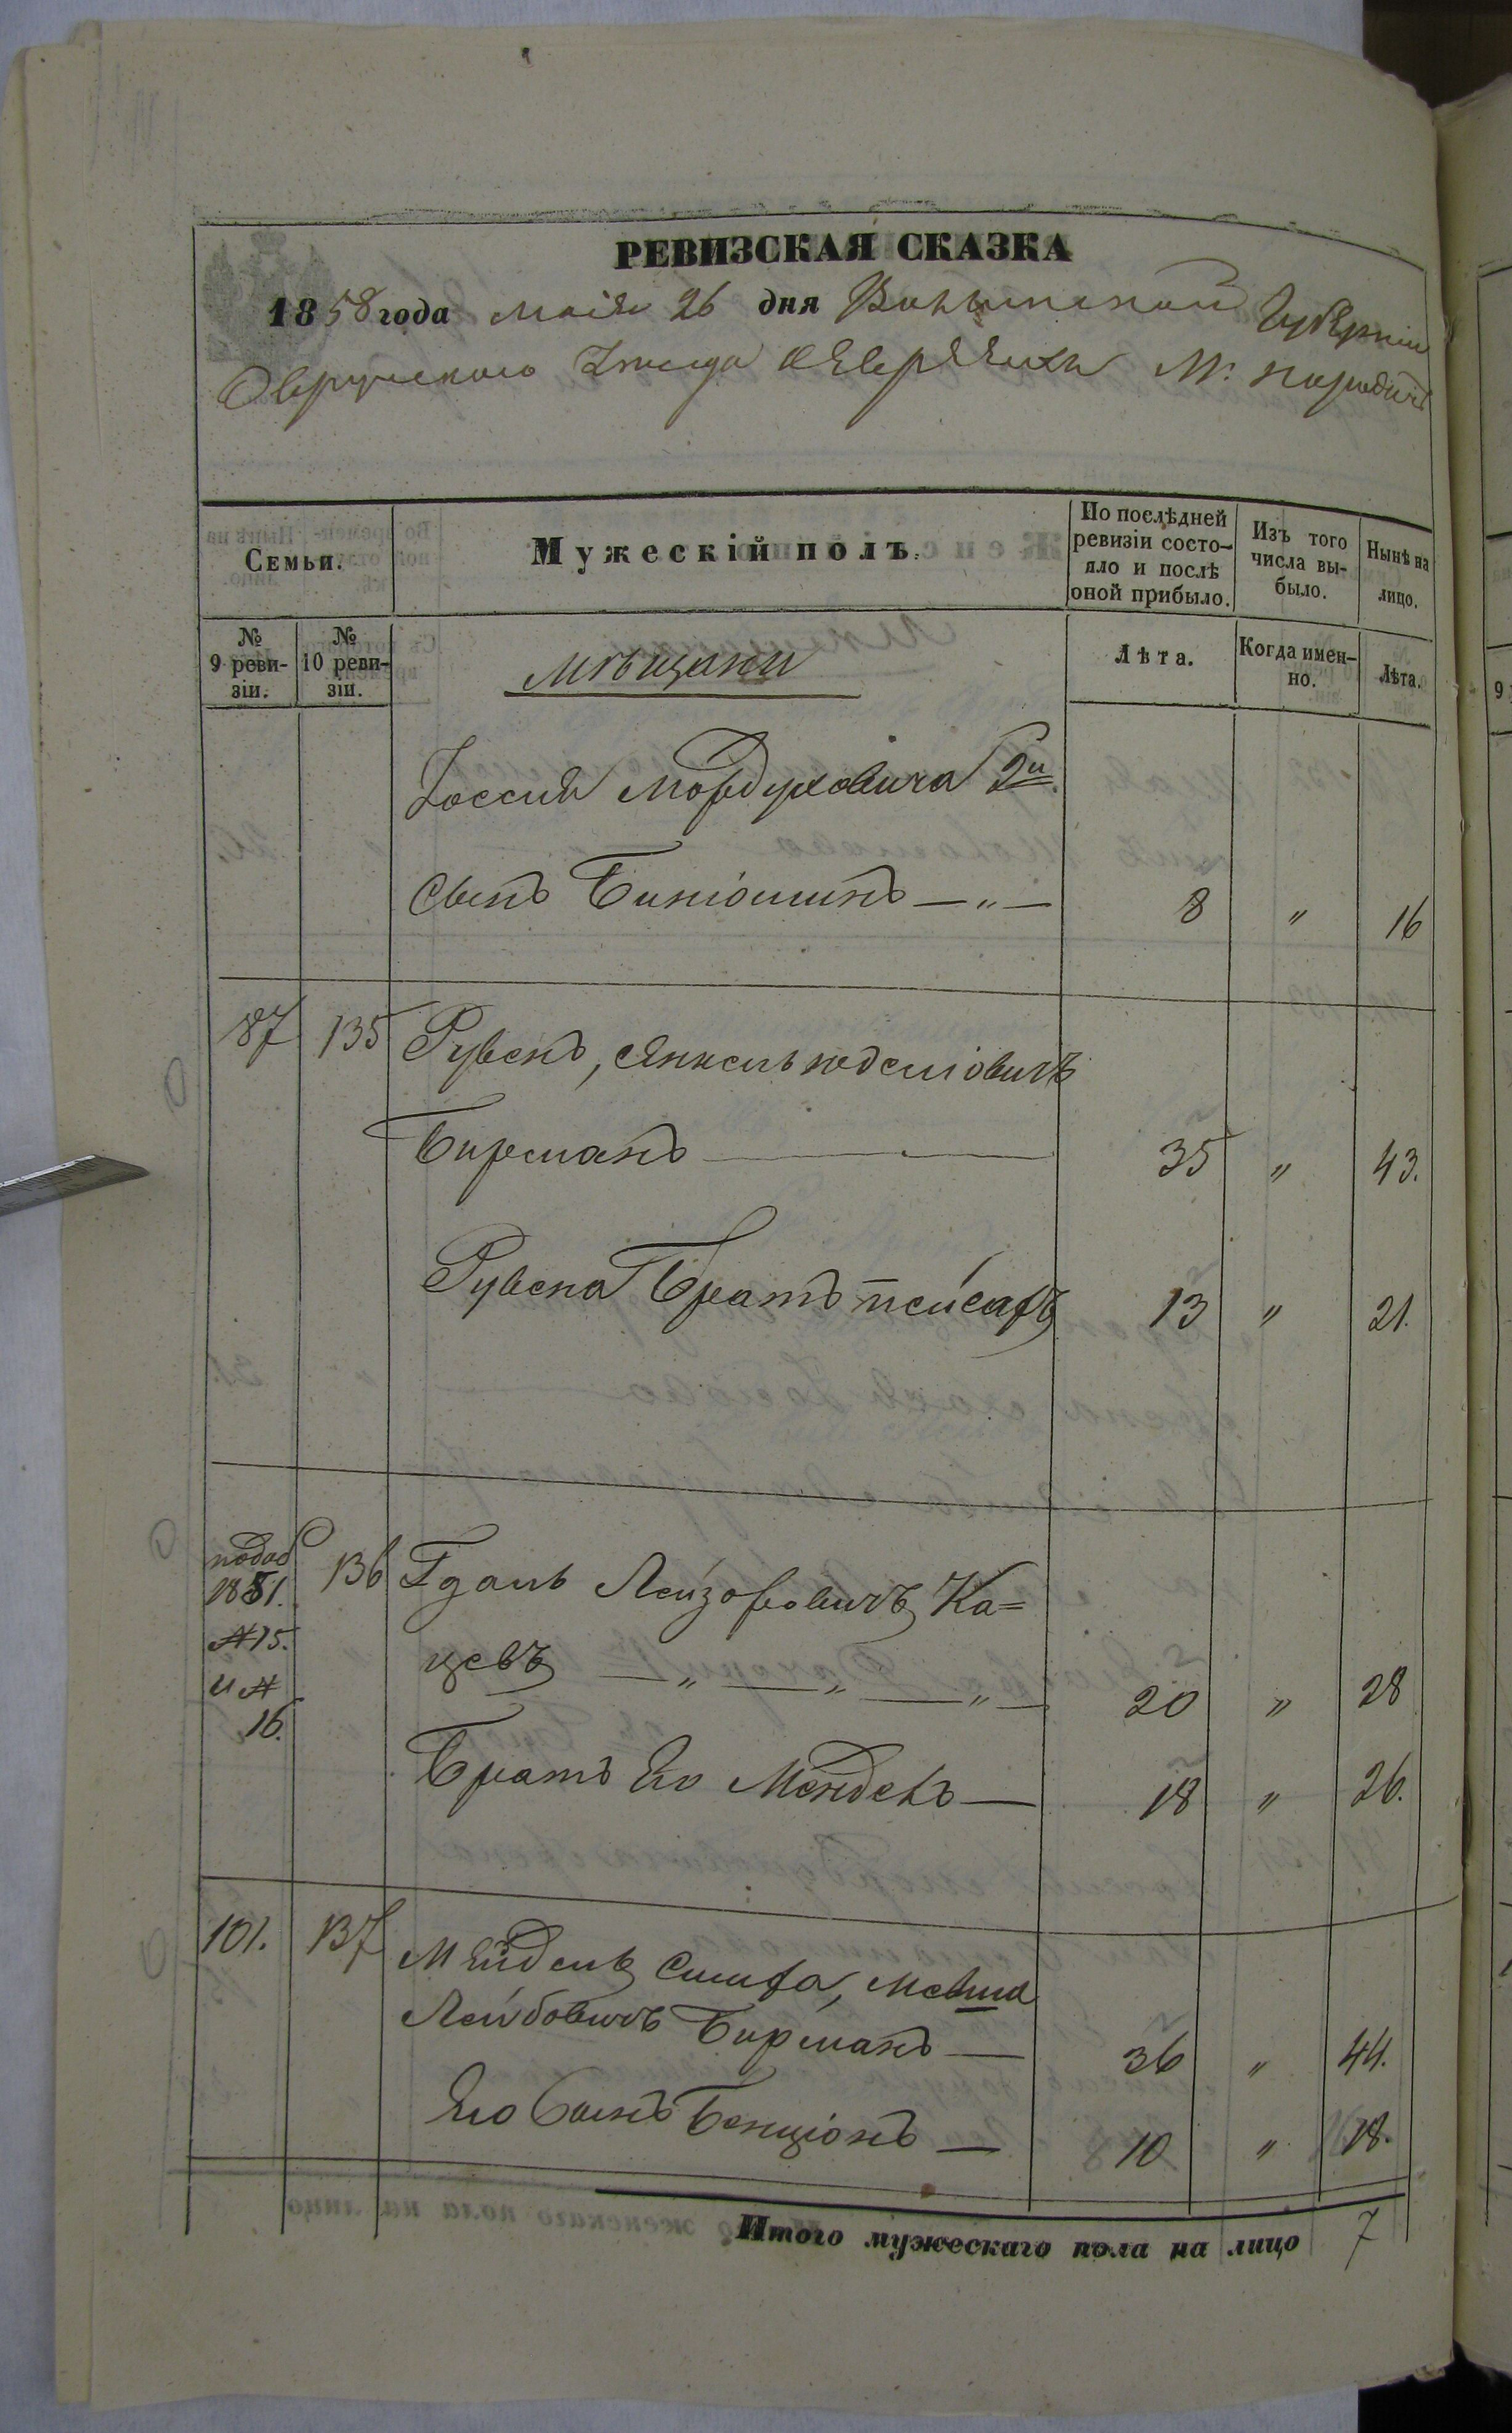 РЕВИЗСКАЯ СКАЗКА
1858 года маія 26 дня Волынской Губерніи
Овручского Уѣзда Евреяхъ М. народичъ
Семьи.
Мужескій полъ.
По послѣдней ревизіи состо-
яло и послѣ
оной прибыло.
Изъ того
числа вы-
было.
Нынѣ на
лицо.
№
9 реви-
зіи.
№
10 реви-
зіи.
мѣщани
Лѣта.
Когда имен-
но.
Лѣта.
Іоссия Мордуховича 2й
Сынъ Биніоминъ — „ — 8 „ 16
87 135 Рувенъ, Янкель
Бирманъ — 35 „ 43.
Рувена Братъ пейсахъ 13 „ 21.
1851. 136 Гдаль Лейзоровичъ Ка=
№15. цевъ — „ — „ — „ — 20 „ 28
и №
16.
Братъ Его Мендель — 18 „ 26.
101. 137 Мендель Симха, Мевша
Лейбовичъ Бирманъ — 36 „ 44.
Его Сынъ Бенціонъ — 10 „ 18.
Итого мужескаго пола на лицо 7